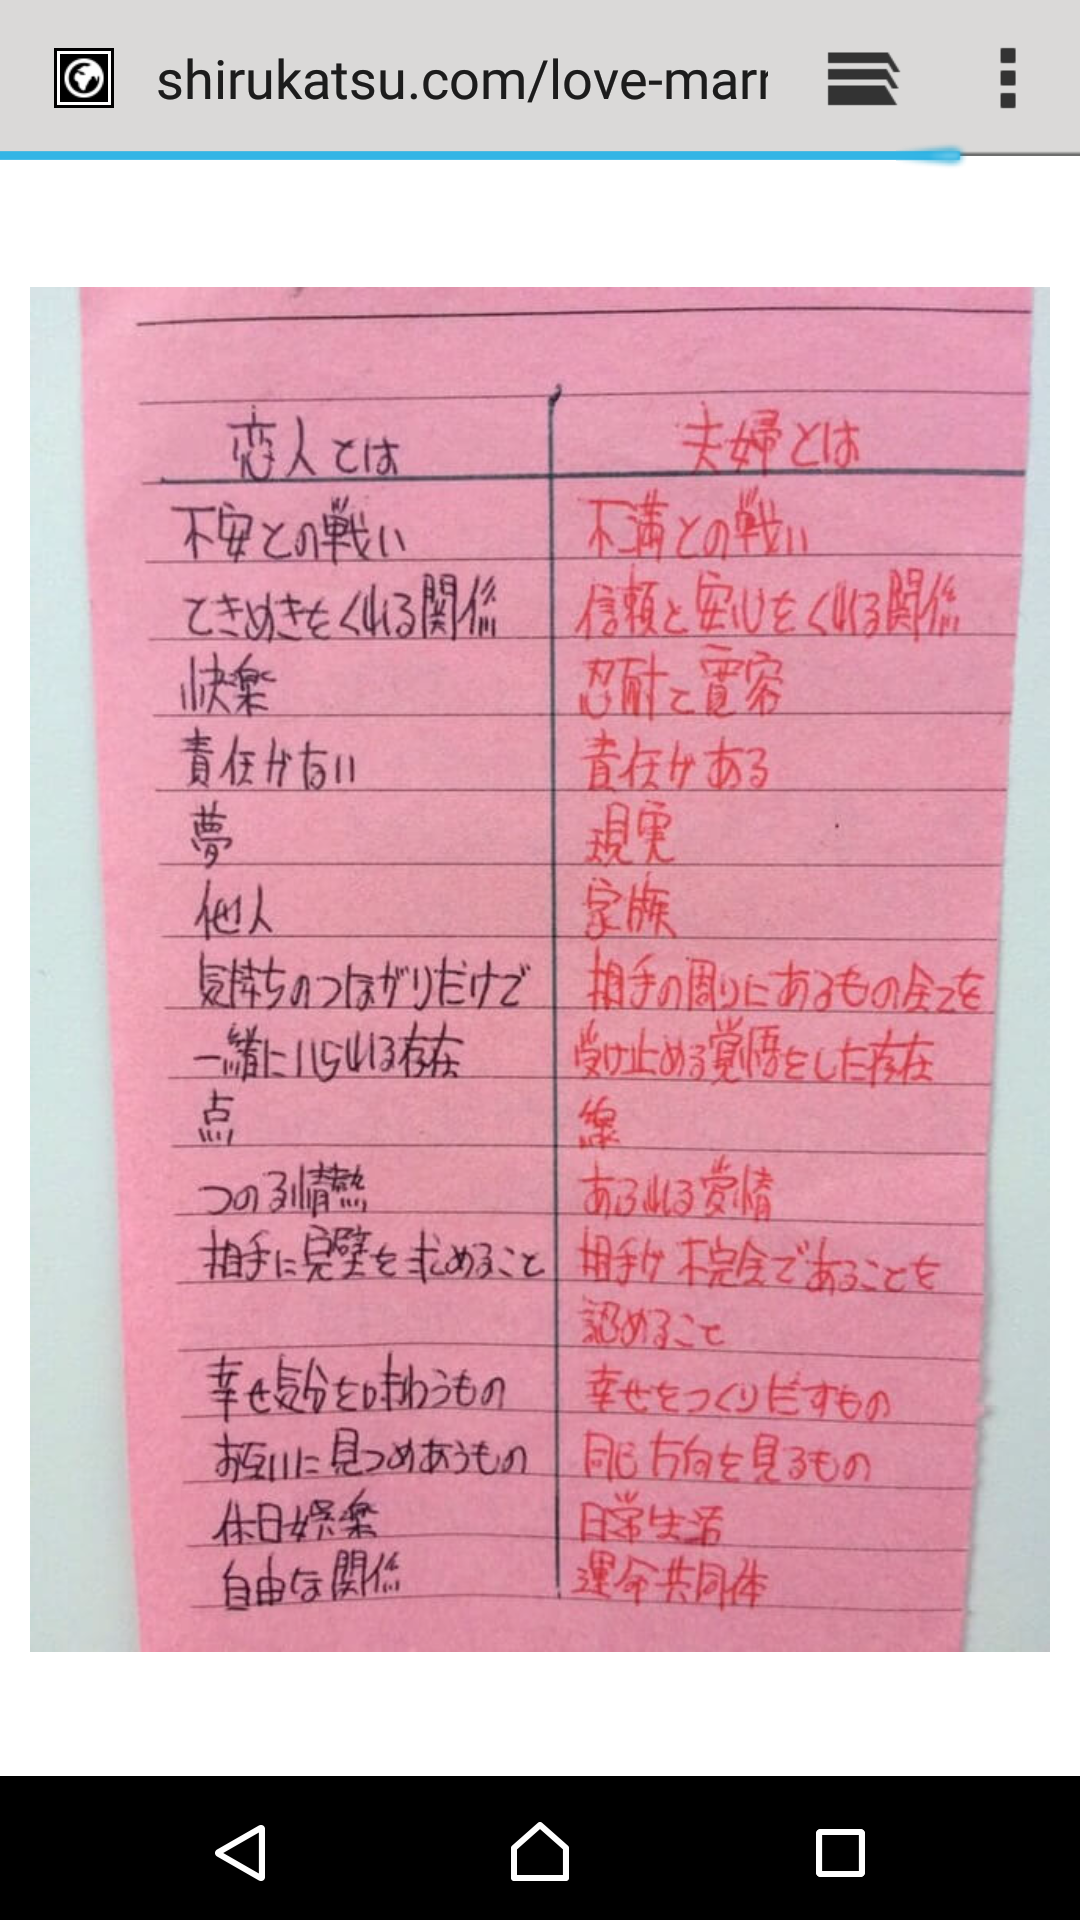 shirukatsu.com/love-marr
恋人とは 夫婦とは
不安との戦い 不満との戦い
ときめきをくれる関係 信頼と安心をくれる関係
快楽 忍耐と寛容
責任がない 責任がある
夢 現実
他人 家族
気持ちのつながりだけで 相手の周りにあるもの全てを
一緒にいられる存在 受け止める覚悟をした存在
点 線
つのる情熱 あふれる愛情
相手に完璧を求めること 相手が不完全であることを
認めること
幸せ気分を味わうもの 幸せをつくりだすもの
お互いに見つめあうもの 同じ方向を見るもの
休日娯楽 日常生活
自由な関係 運命共同体